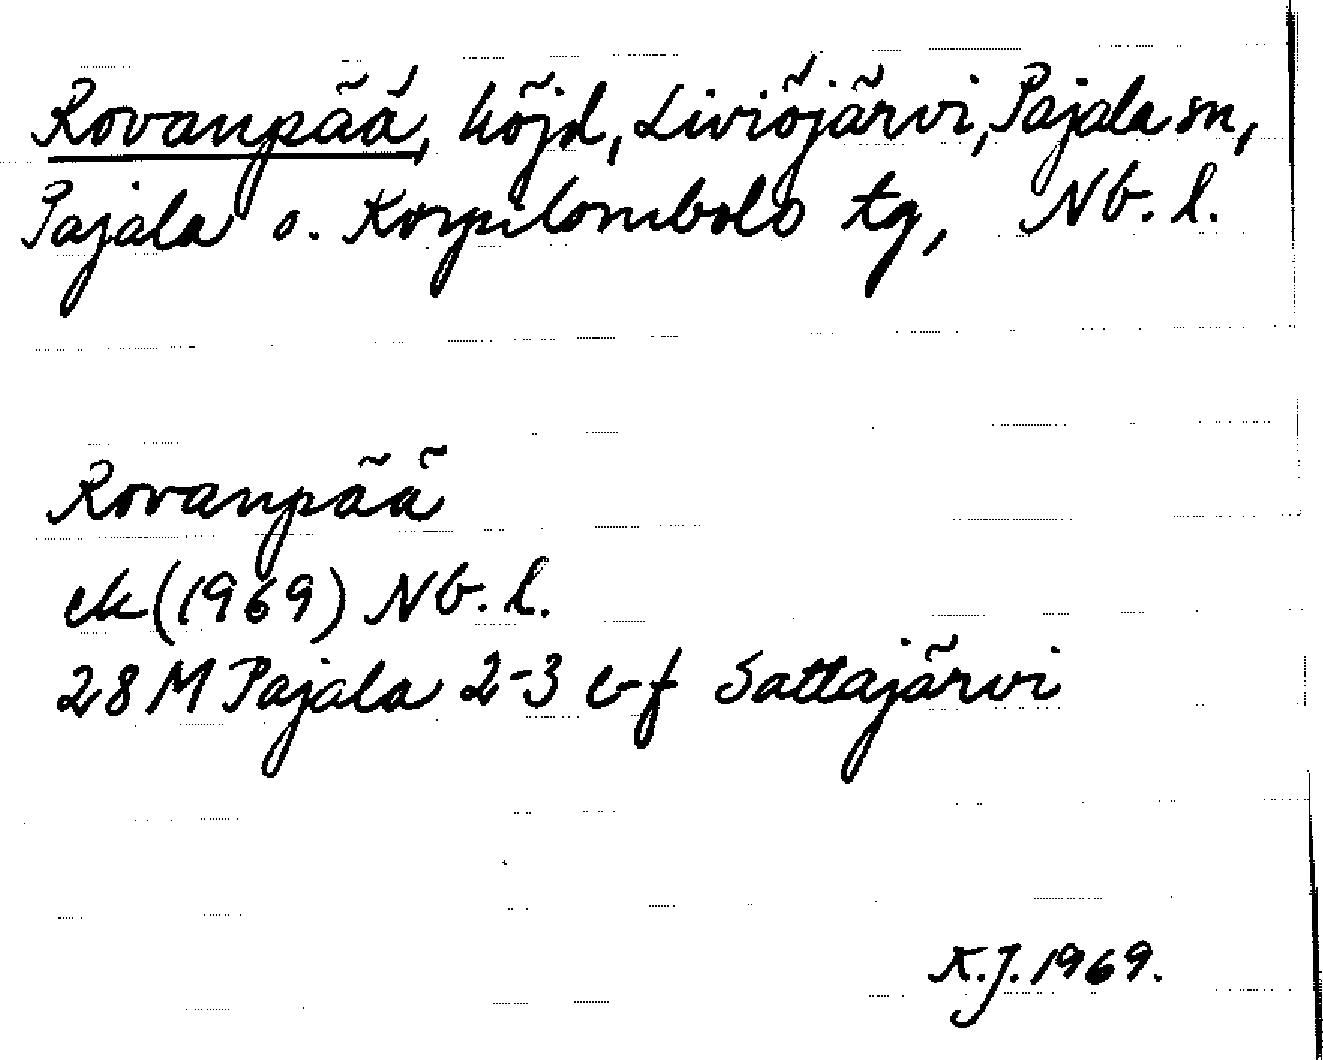 Rovanpää, höjd, Liviöjärvi, Pajala sn,
Pajala o. Korpilombolo tg, Nb. l.
Rovanpää
ek (1969) Nb. l.
28 M Pajala 2-3 e-f Sattajärvi
K.J. 1969.